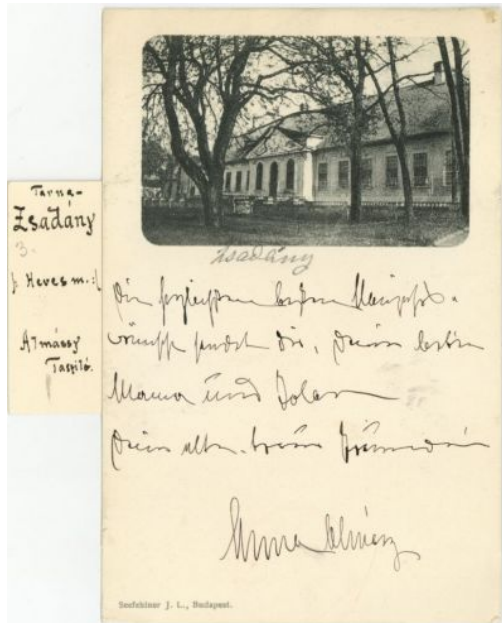 Tarna-
Zsadány
3.
Heves m.
Almássy
Taszilo.
Zsadány
Die herzlichsten besten Neujahrs-
wünsche sendet Dir, Deiner lieben
Mama und Jolan
Deine alte, treue Freundin
Anna
Seefehlner J. L., Budapest.